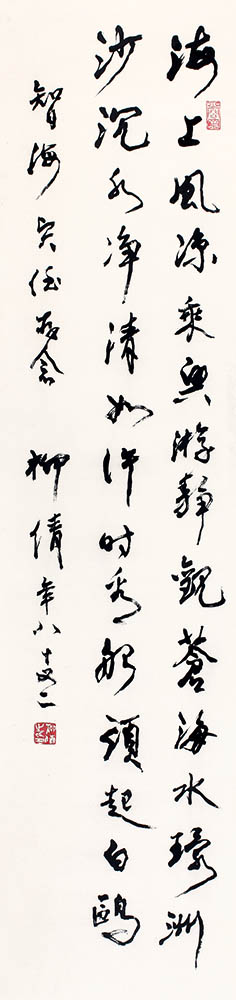 海上風涼乘興游靜觀蒼海水環洲
沙沉水净清如許時看船頭起白鷗
智海賢侄存念 柳倩年八十又二